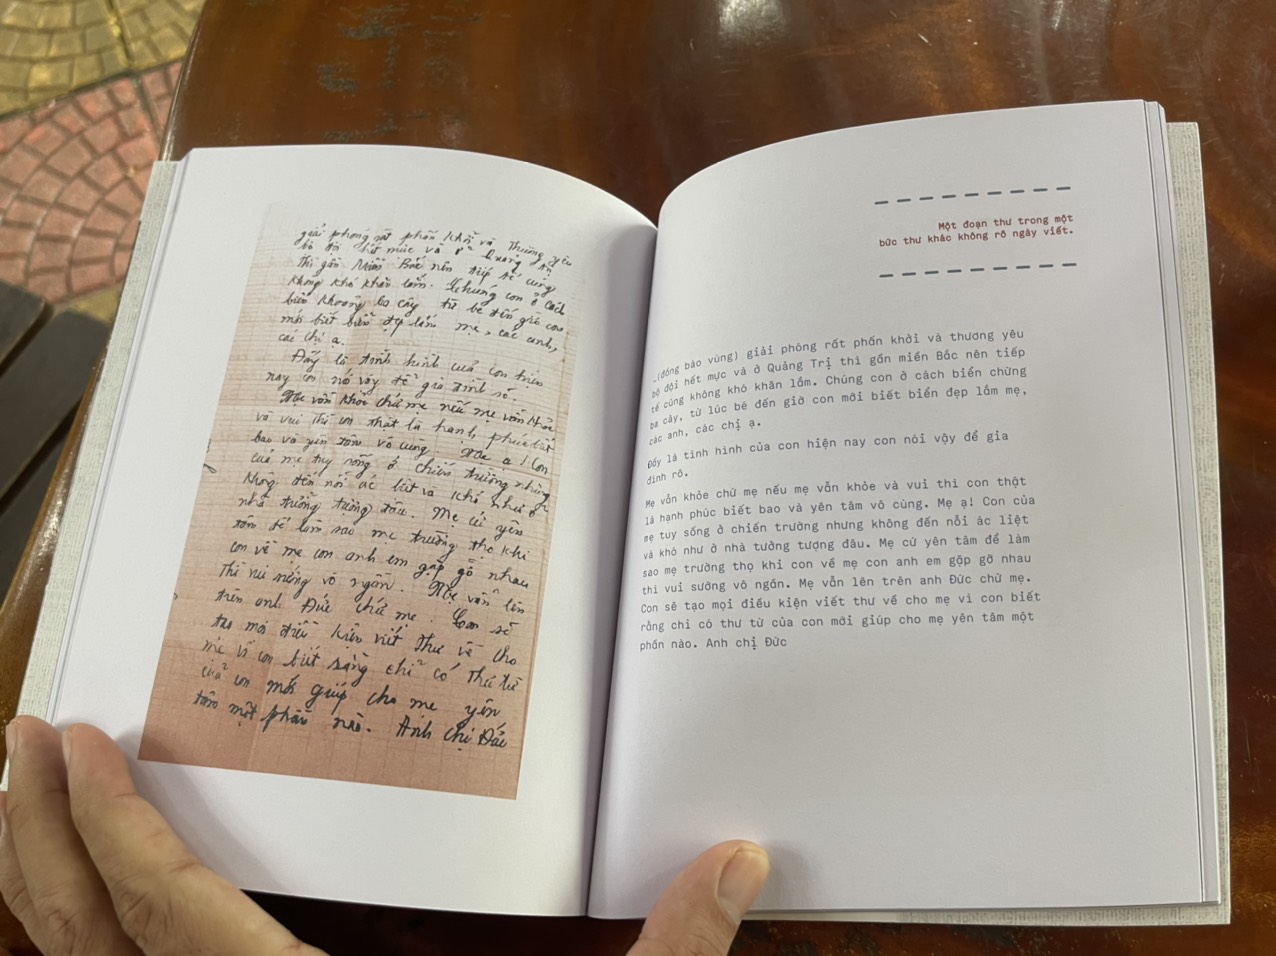 giải phóng rất phấn khởi và thương yêu
bộ đội hết mức và ở Quảng Trị
thì gần Miền Bắc nên tiếp tế cũng
không khó khăn lắm. Chúng con ở cách
biển khoảng ba cây từ bé đến giờ con
mới biết biển đẹp lắm mẹ, các anh,
các chị ạ.
Đấy là tình hình của con hiện
nay con nói vậy để gia đình rõ.
Mẹ vẫn khỏe chứ mẹ nếu mẹ vẫn khỏe
và vui thì con thật là hạnh phúc biết
bao và yên tâm vô cùng. Mẹ ạ! Con
của mẹ tuy sống ở chiến trường nhưng
không đến nỗi ác liệt và khó như ở
nhà tưởng tượng đâu. Mẹ cứ yên
tâm để làm sao mẹ trường thọ khi
con về mẹ con anh em gặp gỡ nhau
thì vui mừng vô ngần. Mẹ vẫn lên
trên anh Đức chứ mẹ. Con sẽ
tạo mọi điều kiện viết thư về cho
mẹ vì con biết rằng chỉ có thư từ
của con mới giúp cho mẹ yên
tâm một phần nào. Anh chị Đức
Một đoạn thư trong một
bức thư khác không rõ ngày viết.
…(đồng bào vùng) giải phóng rất phấn khởi và thương yêu
bộ đội hết mực và ở Quảng Trị thì gần miền Bắc nên tiếp
tế cũng không khó khăn lắm. Chúng con ở cách biển chừng
ba cây, từ lúc bé đến giờ con mới biết biển đẹp lắm mẹ,
các anh, các chị ạ.
Đấy là tình hình của con hiện nay con nói vậy để gia
đình rõ.
Mẹ vẫn khỏe chứ mẹ nếu mẹ vẫn khỏe và vui thì con thật
là hạnh phúc biết bao và yên tâm vô cùng. Mẹ ạ! Con của
mẹ tuy sống ở chiến trường nhưng không đến nỗi ác liệt
và khó như ở nhà tưởng tượng đâu. Mẹ cứ yên tâm để làm
sao mẹ trường thọ khi con về mẹ con anh em gặp gỡ nhau
thì vui sướng vô ngần. Mẹ vẫn lên trên anh Đức chứ mẹ.
Con sẽ tạo mọi điều kiện viết thư về cho mẹ vì con biết
rằng chỉ có thư từ của con mới giúp cho mẹ yên tâm một
phần nào. Anh chị Đức